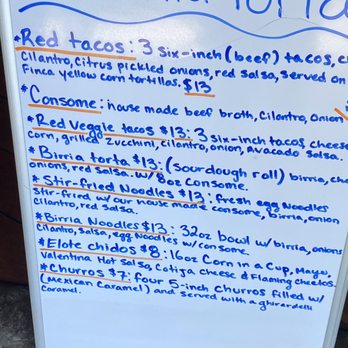 *Red tacos: 3 six-inch (beef) tacos, c
Cilantro, citrus pickled onions, red salsa, served on
Finca yellow corn tortillas. $13
*Consome: inouse made beef broth, Cilantro, Onion
*Red Veggie tacos $13: 3 six-inch tacos cheese
Corn, grilled zucchini, cilantro, onion, avacado salsa.
*Birria torta $13: (sourdough roll) birria, che
onions, red salsa. w/8oz Consome.
*Stir-fried Noodles $13: fresh egg Noodles
Stir-fried w/ our house made consome, birria, onion
Cilantro, red salsa.
*Birria Noodles $13: 32oz bowl w/ birria, onions
Cilantro, salsa, egg Noodles w/consome.
*Elote chidos $8: 16oz Corn in a Cup, Mayo,
Valentina Hot salsa, Cotija cheese & Flaming cheetos.
*Churros $7: four 5-inch churros filled w/
(Mexican Caramel) and served with a ghirardelli
Caramel.